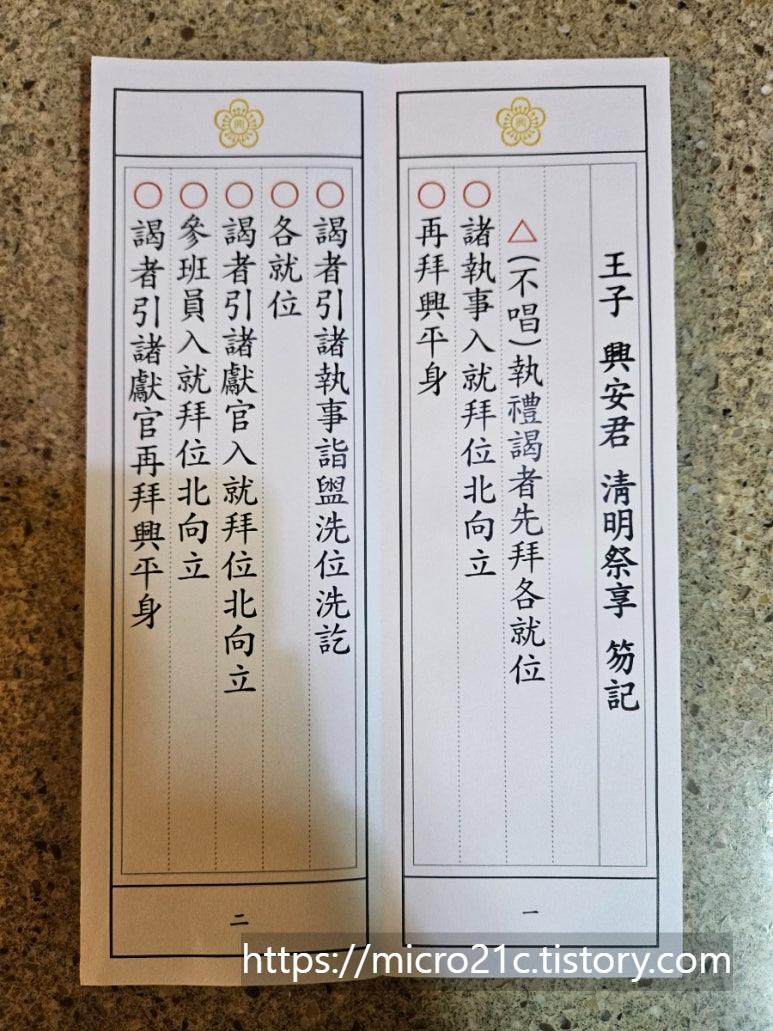 王子 興安君 淸明祭享 笏記
△(不唱)執禮謁者先拜各就位
○諸執事入就拜位北向立
○再拜興平身
一
○謁者引諸執事詣盥洗位洗訖
○各就位
○謁者引諸獻官入就拜位北向立
○參班員入就拜位北向立
○謁者引諸獻官再拜興平身
二
https://micro21c.tistory.com